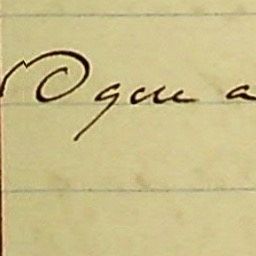 O que a